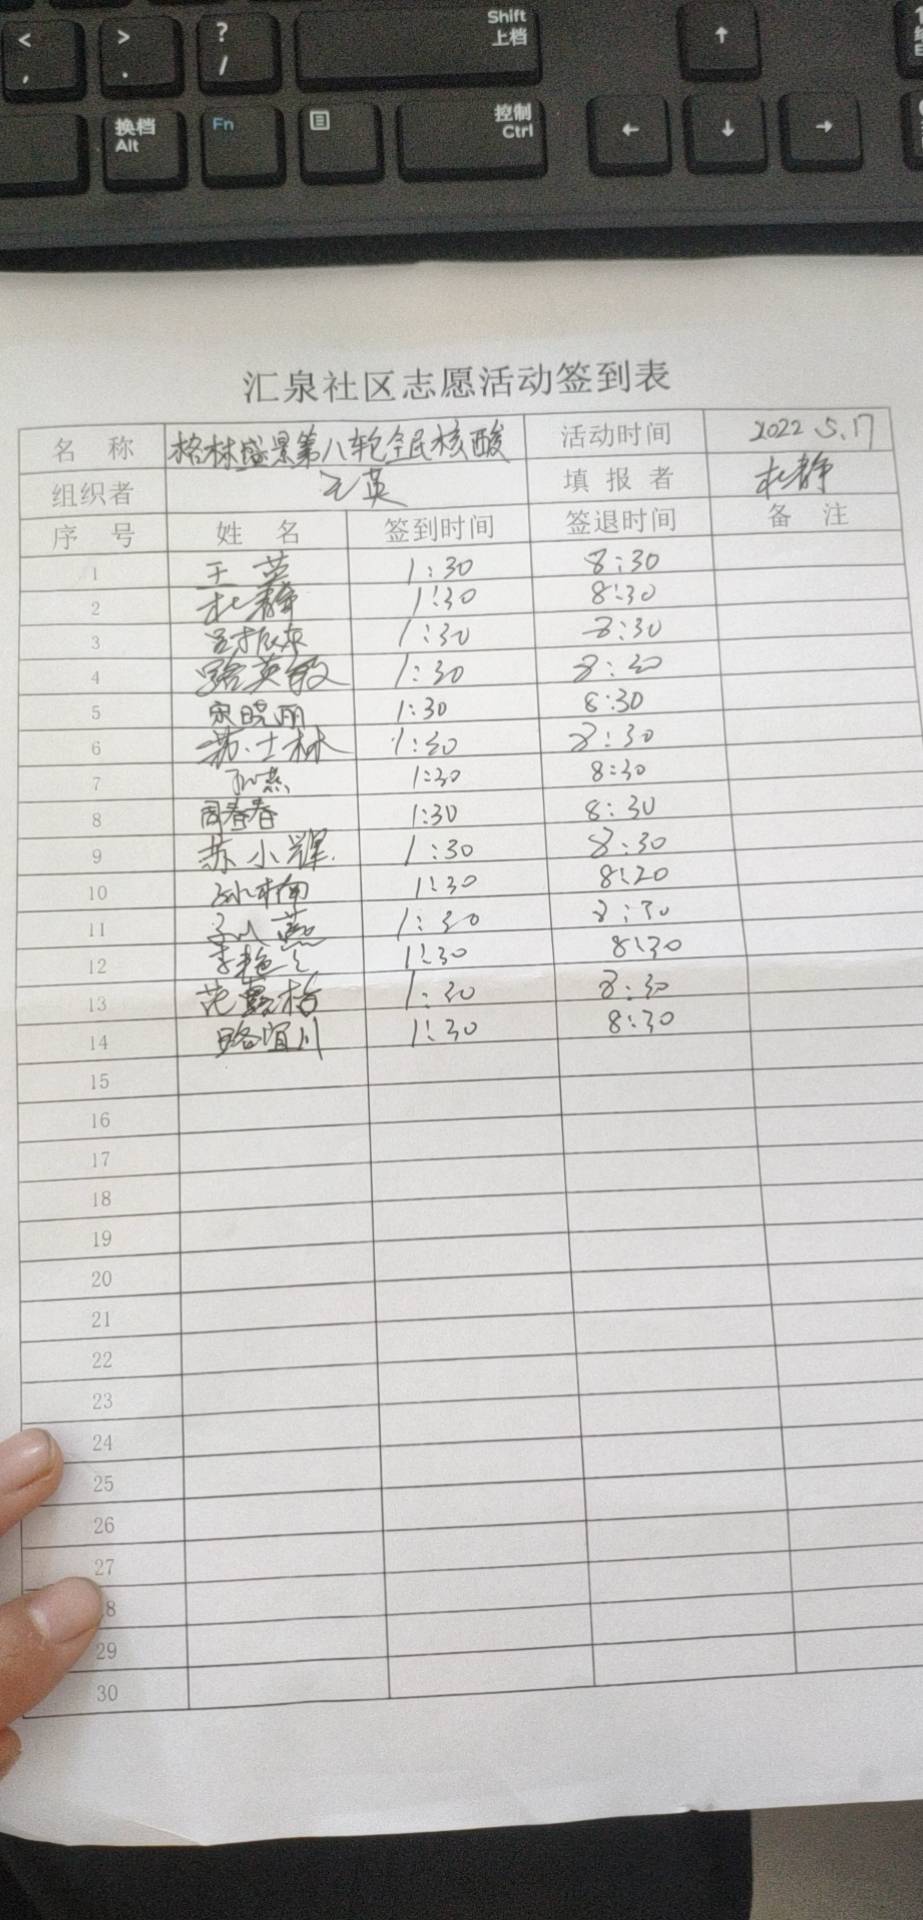 < >  ? Shift
, . / 上档 ↑
换档 Fn 控制
Alt Ctrl ← ↓ →
汇泉社区志愿活动签到表
名 称 格林盛景第八轮全民核酸 活动时间 2022.5.17
组织者 王英 填 报 者 杜静
序 号 姓 名 签到时间 签退时间 备 注
1 王英 1:30 8:30
2 杜静 1:30 8:30
3 1:30 8:30
4 路英敏 1:30 8:30
5 宋晓丽 1:30 8:30
6 苏士林 1:30 8:30
7 孙燕 1:30 8:30
8 周春春 1:30 8:30
9 苏小辉 1:30 8:30
10 1:30 8:20
11 1:30 8:30
12 1:30 8:30
13 1:30 8:30
14 路宜川 1:30 8:30
15
16
17
18
19
20
21
22
23
24
25
26
27
8
29
30